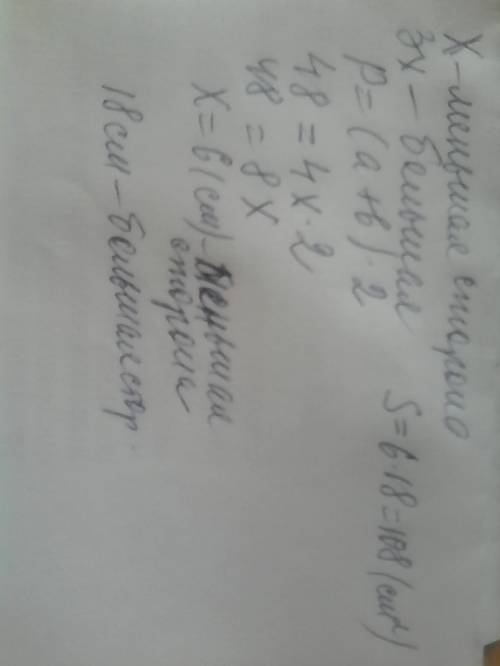 X – меньшая сторона
3X – большая
P = (a + b) · 2
48 = 4X · 2
48 = 8X
X = 6 (см) – меньшая
сторона
18 см – большая стор.
S = 6 · 18 = 108 (см²)